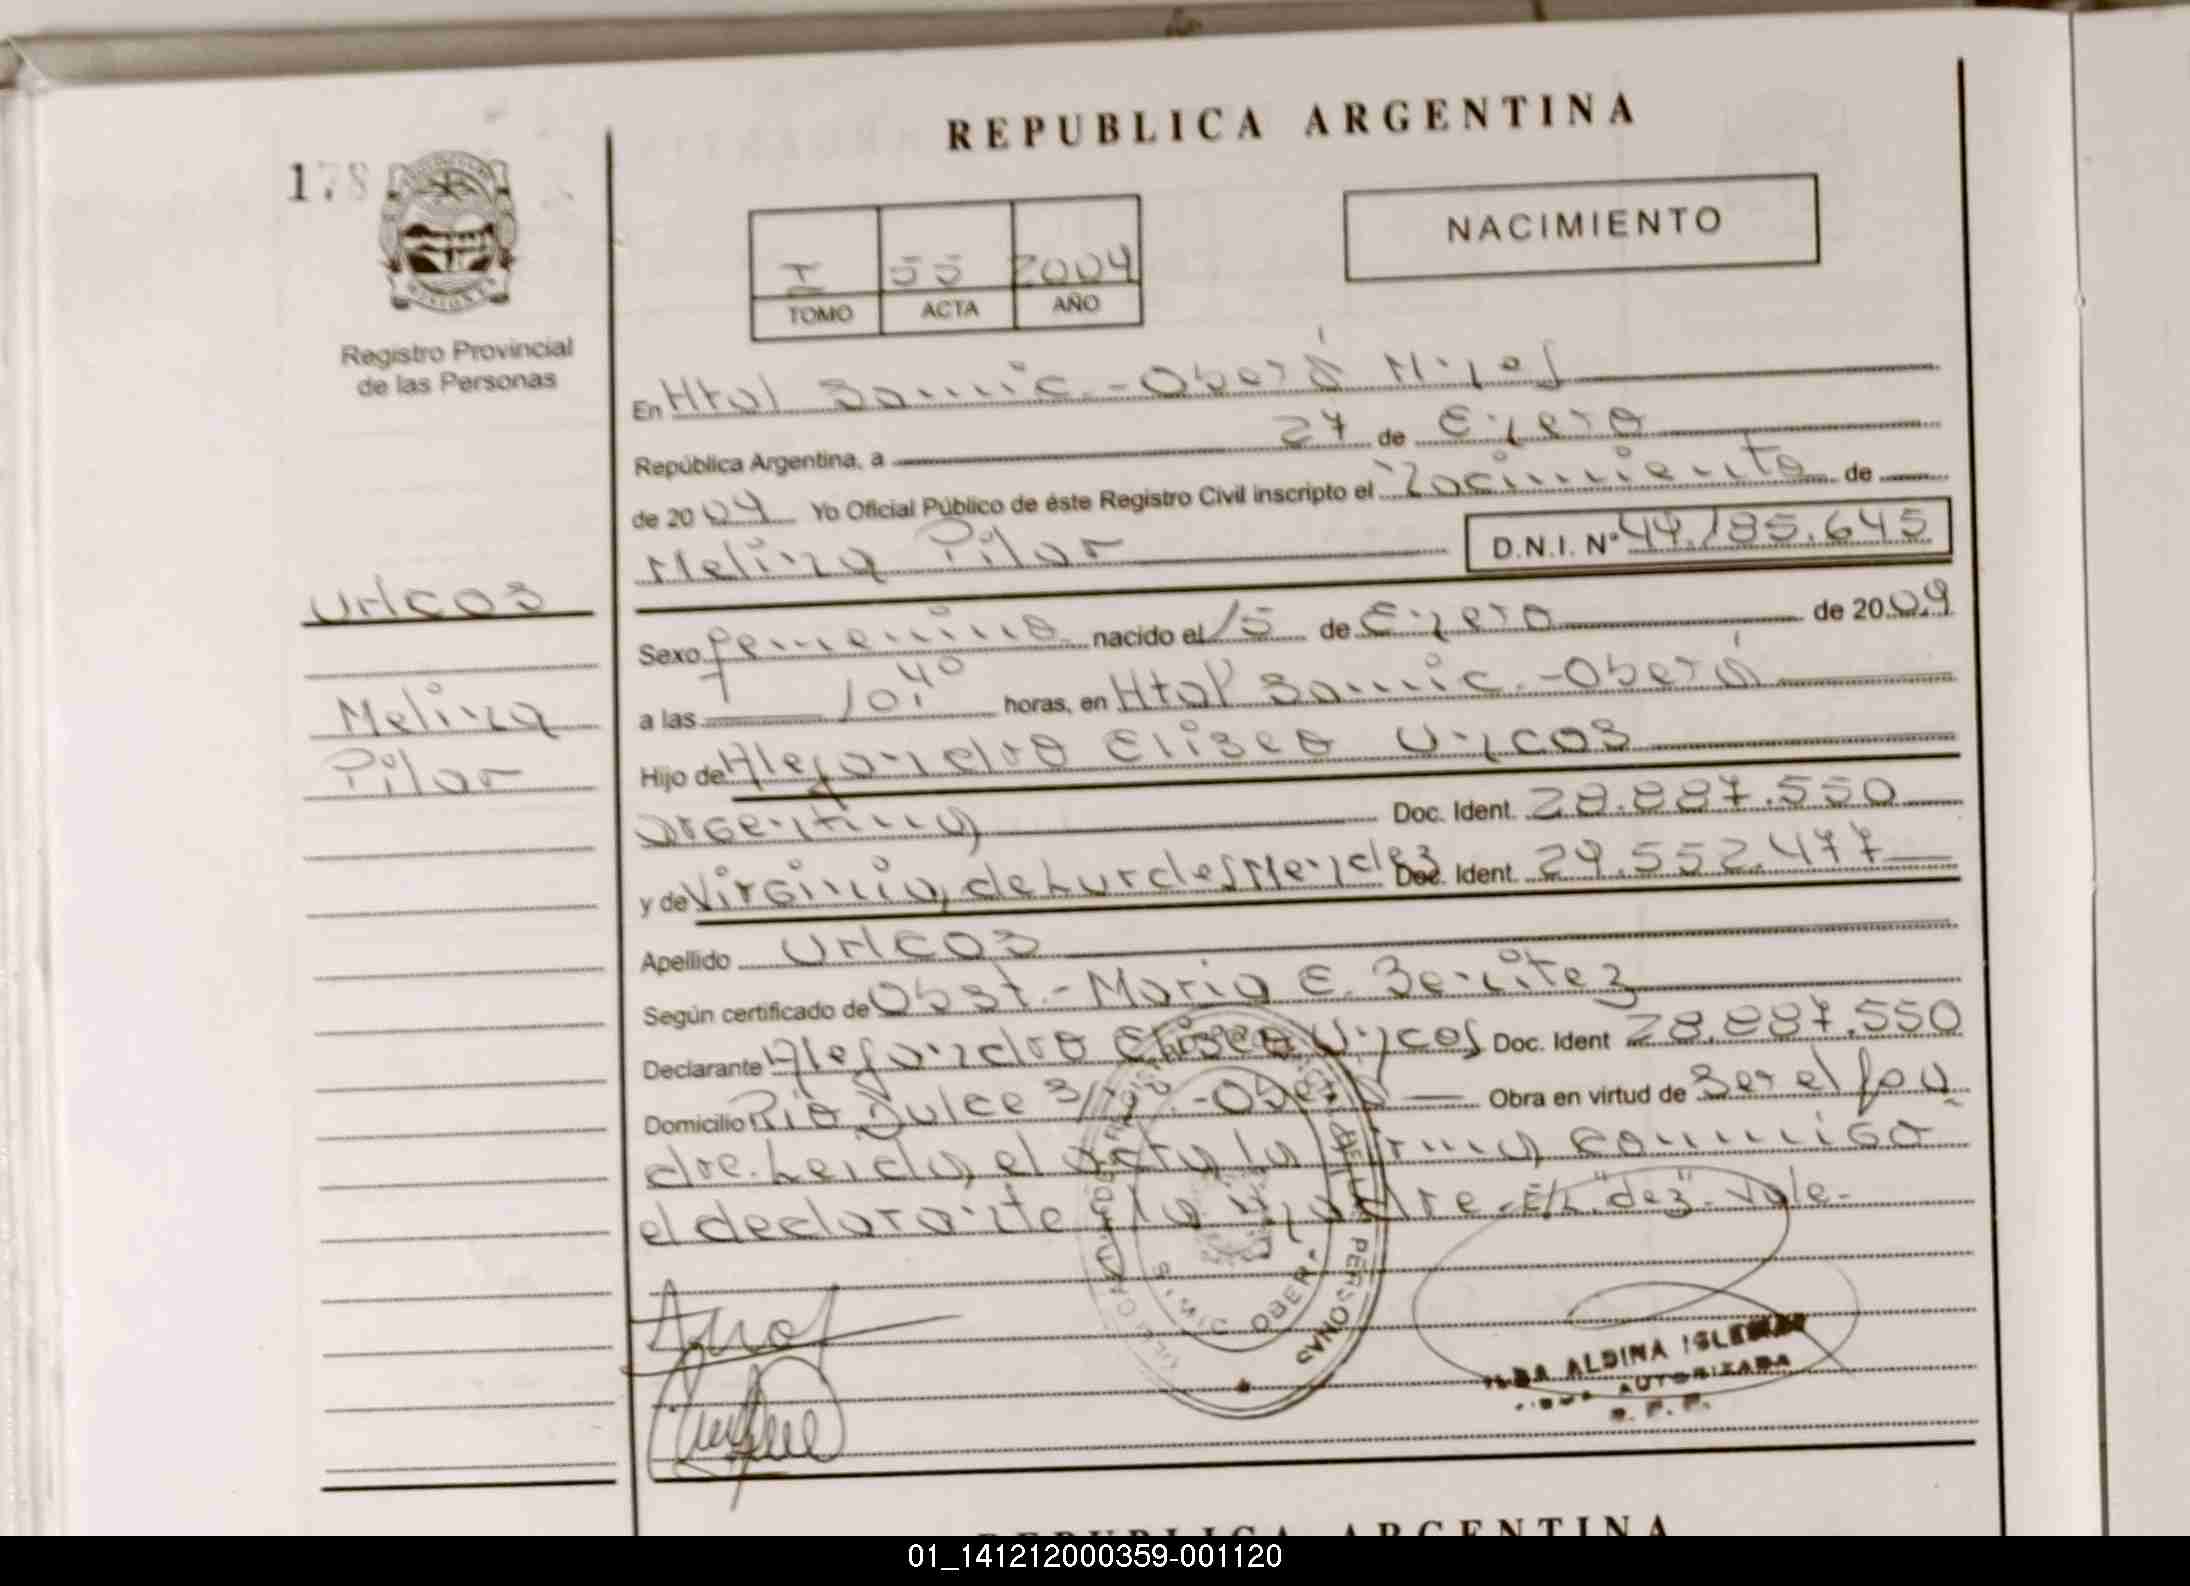 REPUBLICA ARGENTINA
178
NACIMIENTO
I 55 2004
TOMO ACTA AÑO
Registro Provincial
de las Personas
En Htal Samic.-Oberá Mnes
República Argentina, a 27 de Enero
de 2004 Yo Oficial Público de éste Registro Civil inscripto el Nacimiento de
Melina Pilar D.N.I. Nº 44.185.645
UNCOS
Melina
Pilar
Sexo femenino nacido el 15 de Enero de 2004
a las 10,40 horas, en Htal Samic.-Oberá
Hijo de Alejandro Eliseo Uncos
argentino Doc. Ident. 28.887.550
y de Virginia de Lurdes Mendez Doc. Ident. 24.552.477
Apellido UNCOS
Según certificado de Obst.- Maria E. Benitez
Declarante Alejandro Eliseo Uncos Doc. Ident 28.887.550
Domicilio Rio Dulce -Oberá Obra en virtud de Ser el pa
dre. Leida el acta la firma conmigo
el declarante y la madre.-E/L."dez".Vale.-
PERSONAS
OBERA
ALDINA IGLESIAS
AUTORIZADA
R. P. P.
REPUBLICA ARGENTINA
01_141212000359-001120